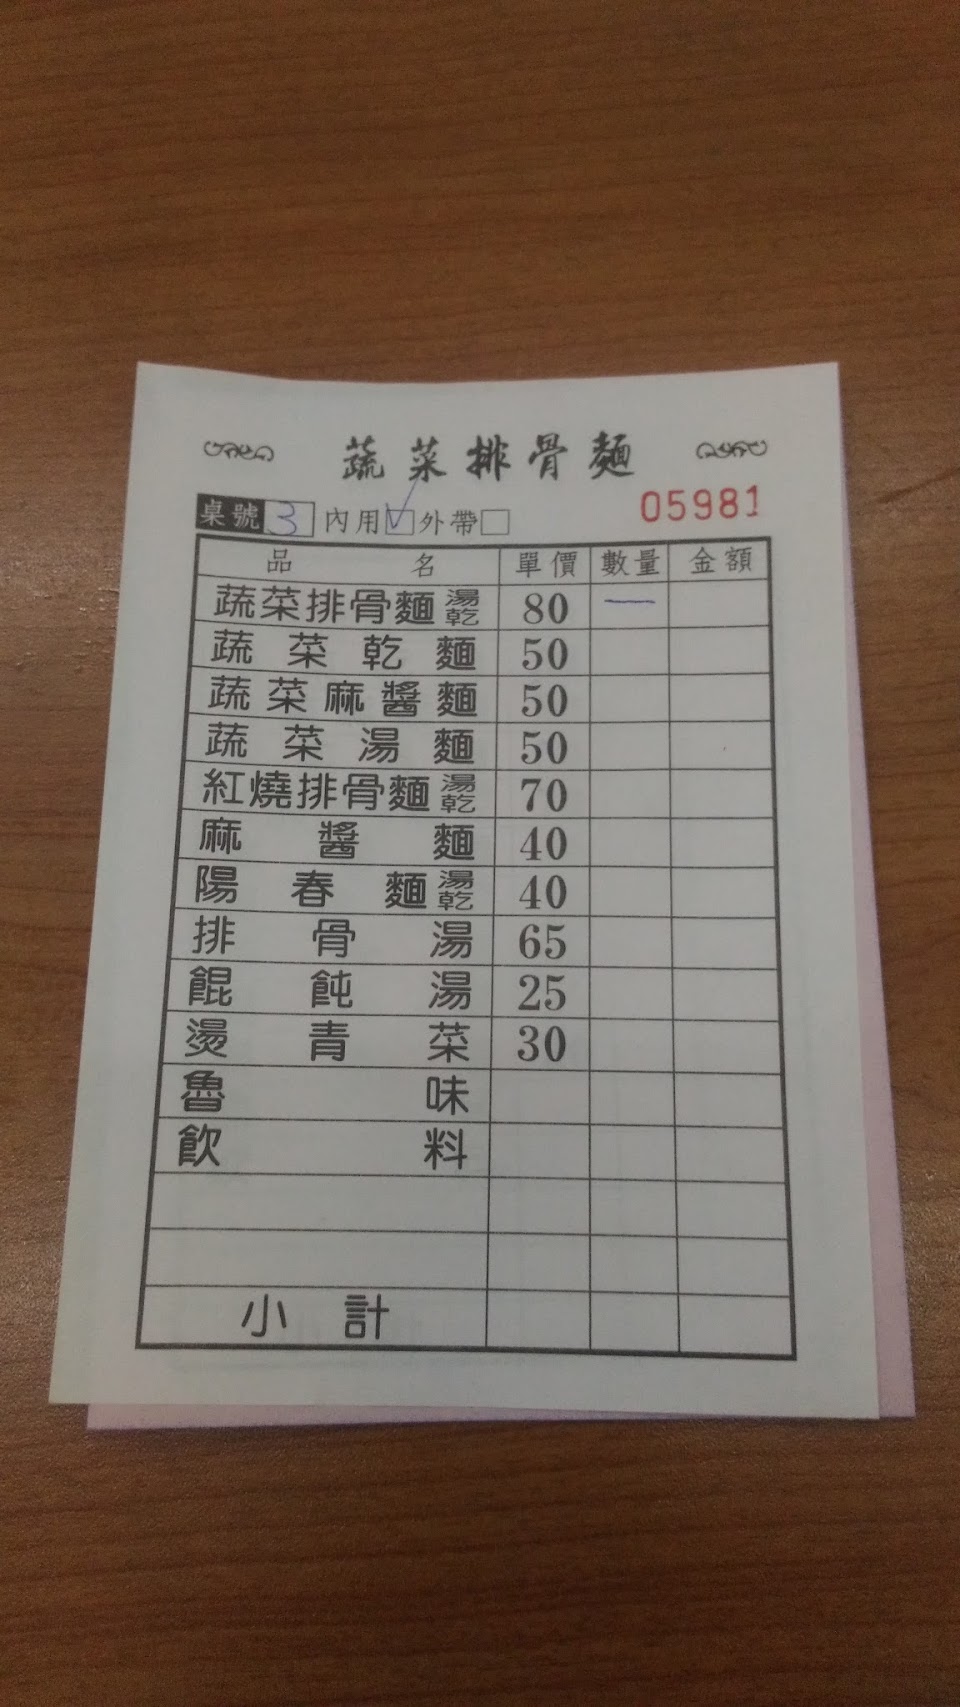 蔬菜排骨麵
05981
桌號 3 內用 ✓ 外帶
品名 單價 數量 金額
蔬菜排骨麵 湯乾 80 一
蔬菜乾麵 50
蔬菜麻醬麵 50
蔬菜湯麵 50
紅燒排骨麵 湯乾 70
麻醬麵 40
陽春麵 湯乾 40
排骨湯 65
餛飩湯 25
燙青菜 30
魯味
飲料
小計